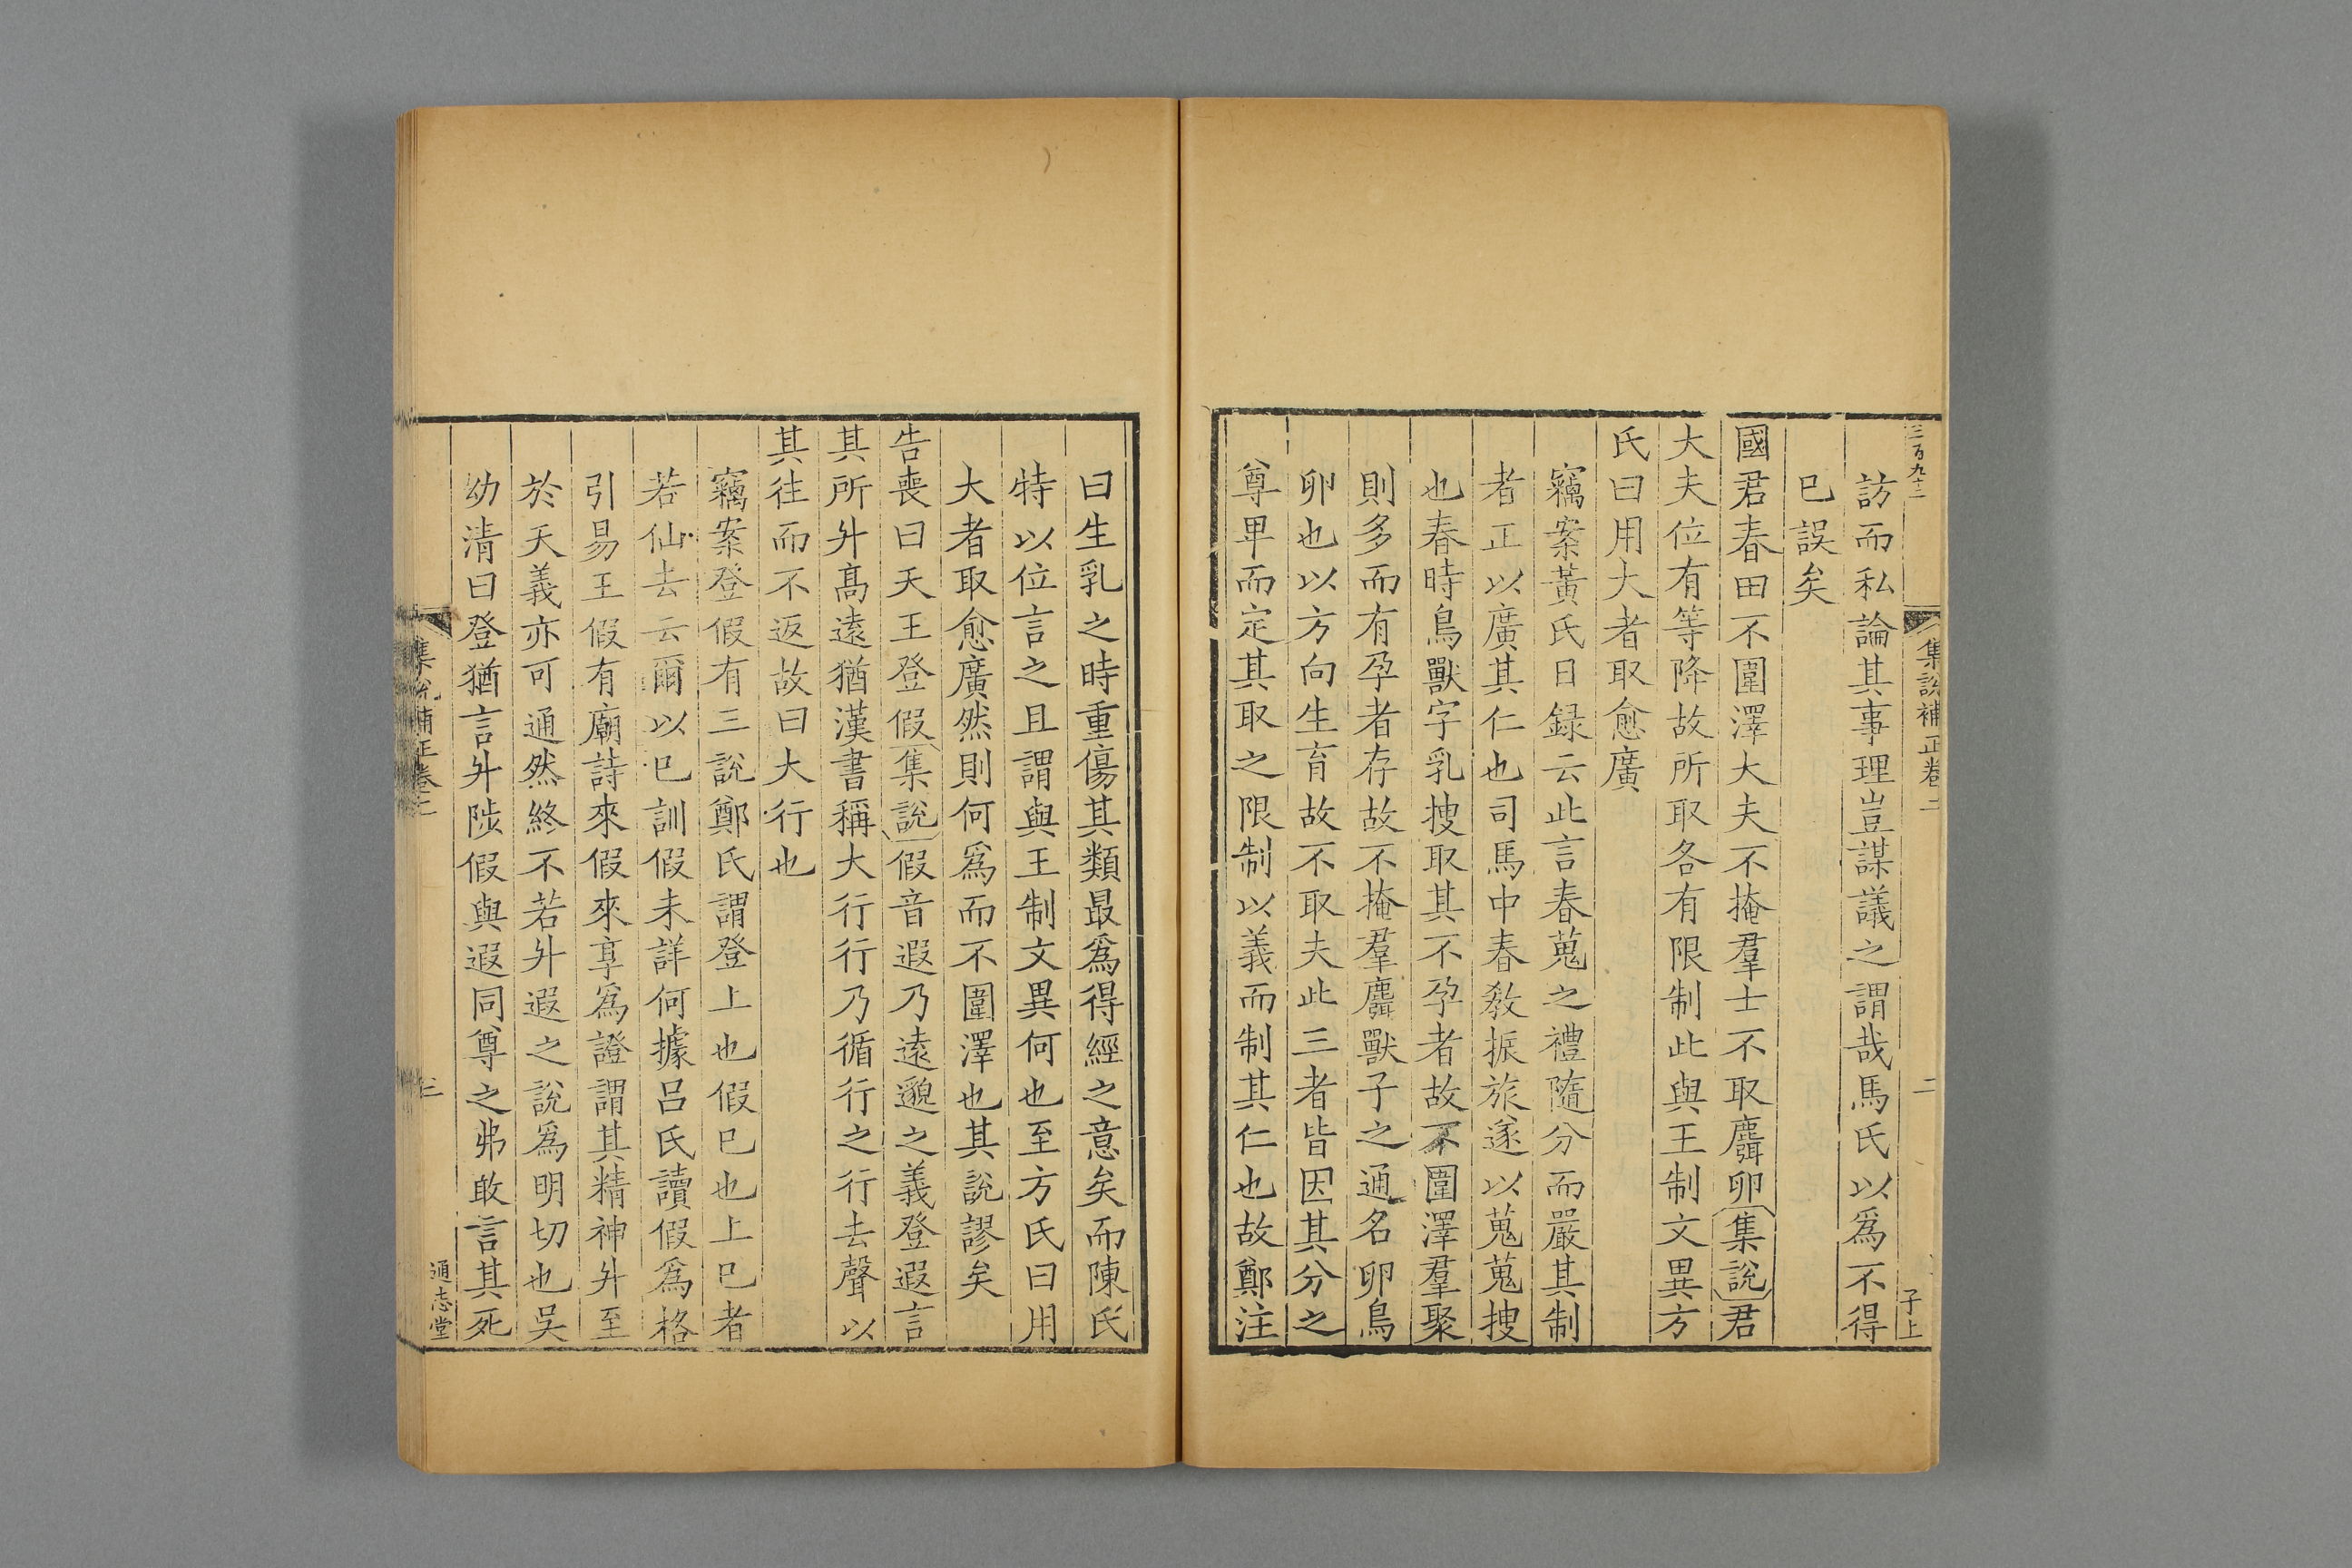 三百九十二
集說補正卷二
二
子上
訪而私論其事理豈謀議之謂哉馬氏以爲不得
巳誤矣
國君春田不圍澤大夫不掩羣士不取麛卵集說君
大夫位有等降故所取各有限制此與王制文異方
氏曰用大者取愈廣
竊案黃氏日録云此言春蒐之禮隨分而嚴其制
者正以廣其仁也司馬中春教振旅遂以蒐蒐搜
也春時鳥獸字乳搜取其不孕者故不圍澤羣聚
則多而有孕者存故不掩羣麛獸子之通名卵鳥
卵也以方向生育故不取夫此三者皆因其分之
尊卑而定其取之限制以義而制其仁也故鄭注
曰生乳之時重傷其類最爲得經之意矣而陳氏
特以位言之且謂與王制文異何也至方氏曰用
大者取愈廣然則何爲而不圍澤也其說謬矣
告喪曰天王登假集說假音遐乃遠邈之義登遐言
其所升高遠猶漢書稱大行行乃循行之行去聲以
其往而不返故曰大行也
竊案登假有三說鄭氏謂登上也假巳也上巳者
若仙去云爾以巳訓假未詳何據呂氏讀假爲格
引易王假有廟詩來假來享爲證謂其精神升至
於天義亦可通然終不若升遐之說爲明切也吳
幼清曰登猶言升陟假與遐同尊之弗敢言其死
集說補正卷二
三
通志堂